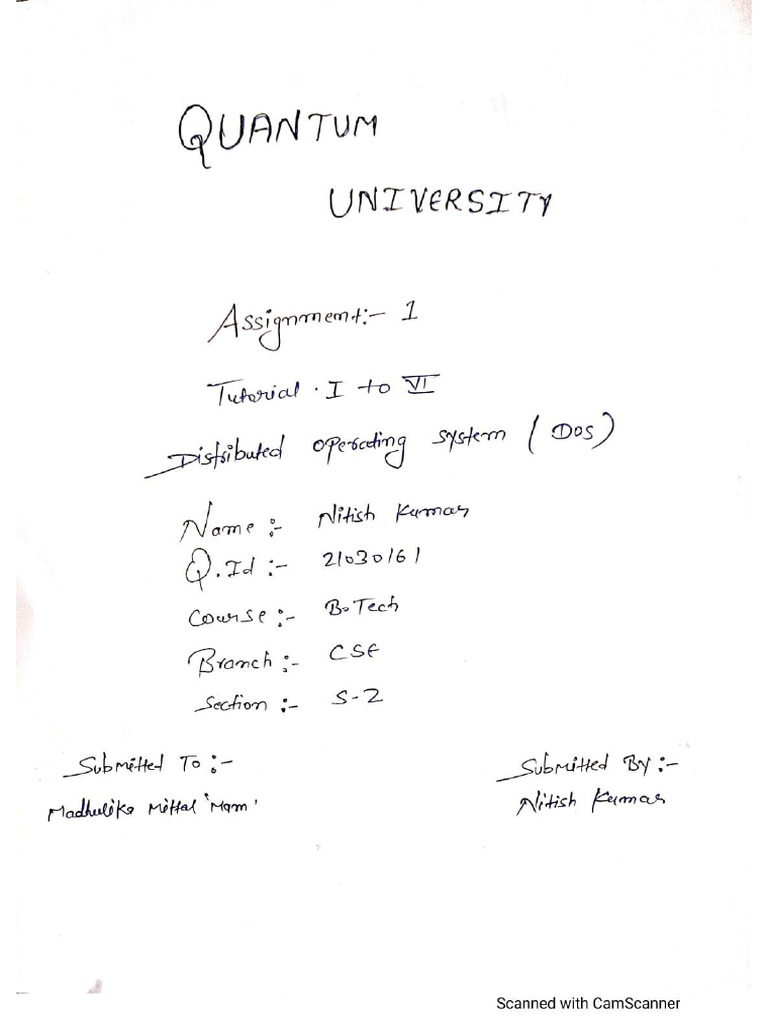 QUANTUM
UNIVERSITY
Assignment:- 1
Tutorial . I to VI
Distributed operating system (DOS)
Name :- Nitish Kumar
Q.Id :- 21030161
Course :- B.Tech
Branch :- CSE
Section :- S-2
Submitted To :-
Submitted By :-
Madhulika Mittal 'Mam'
Nitish Kumar
Scanned with CamScanner